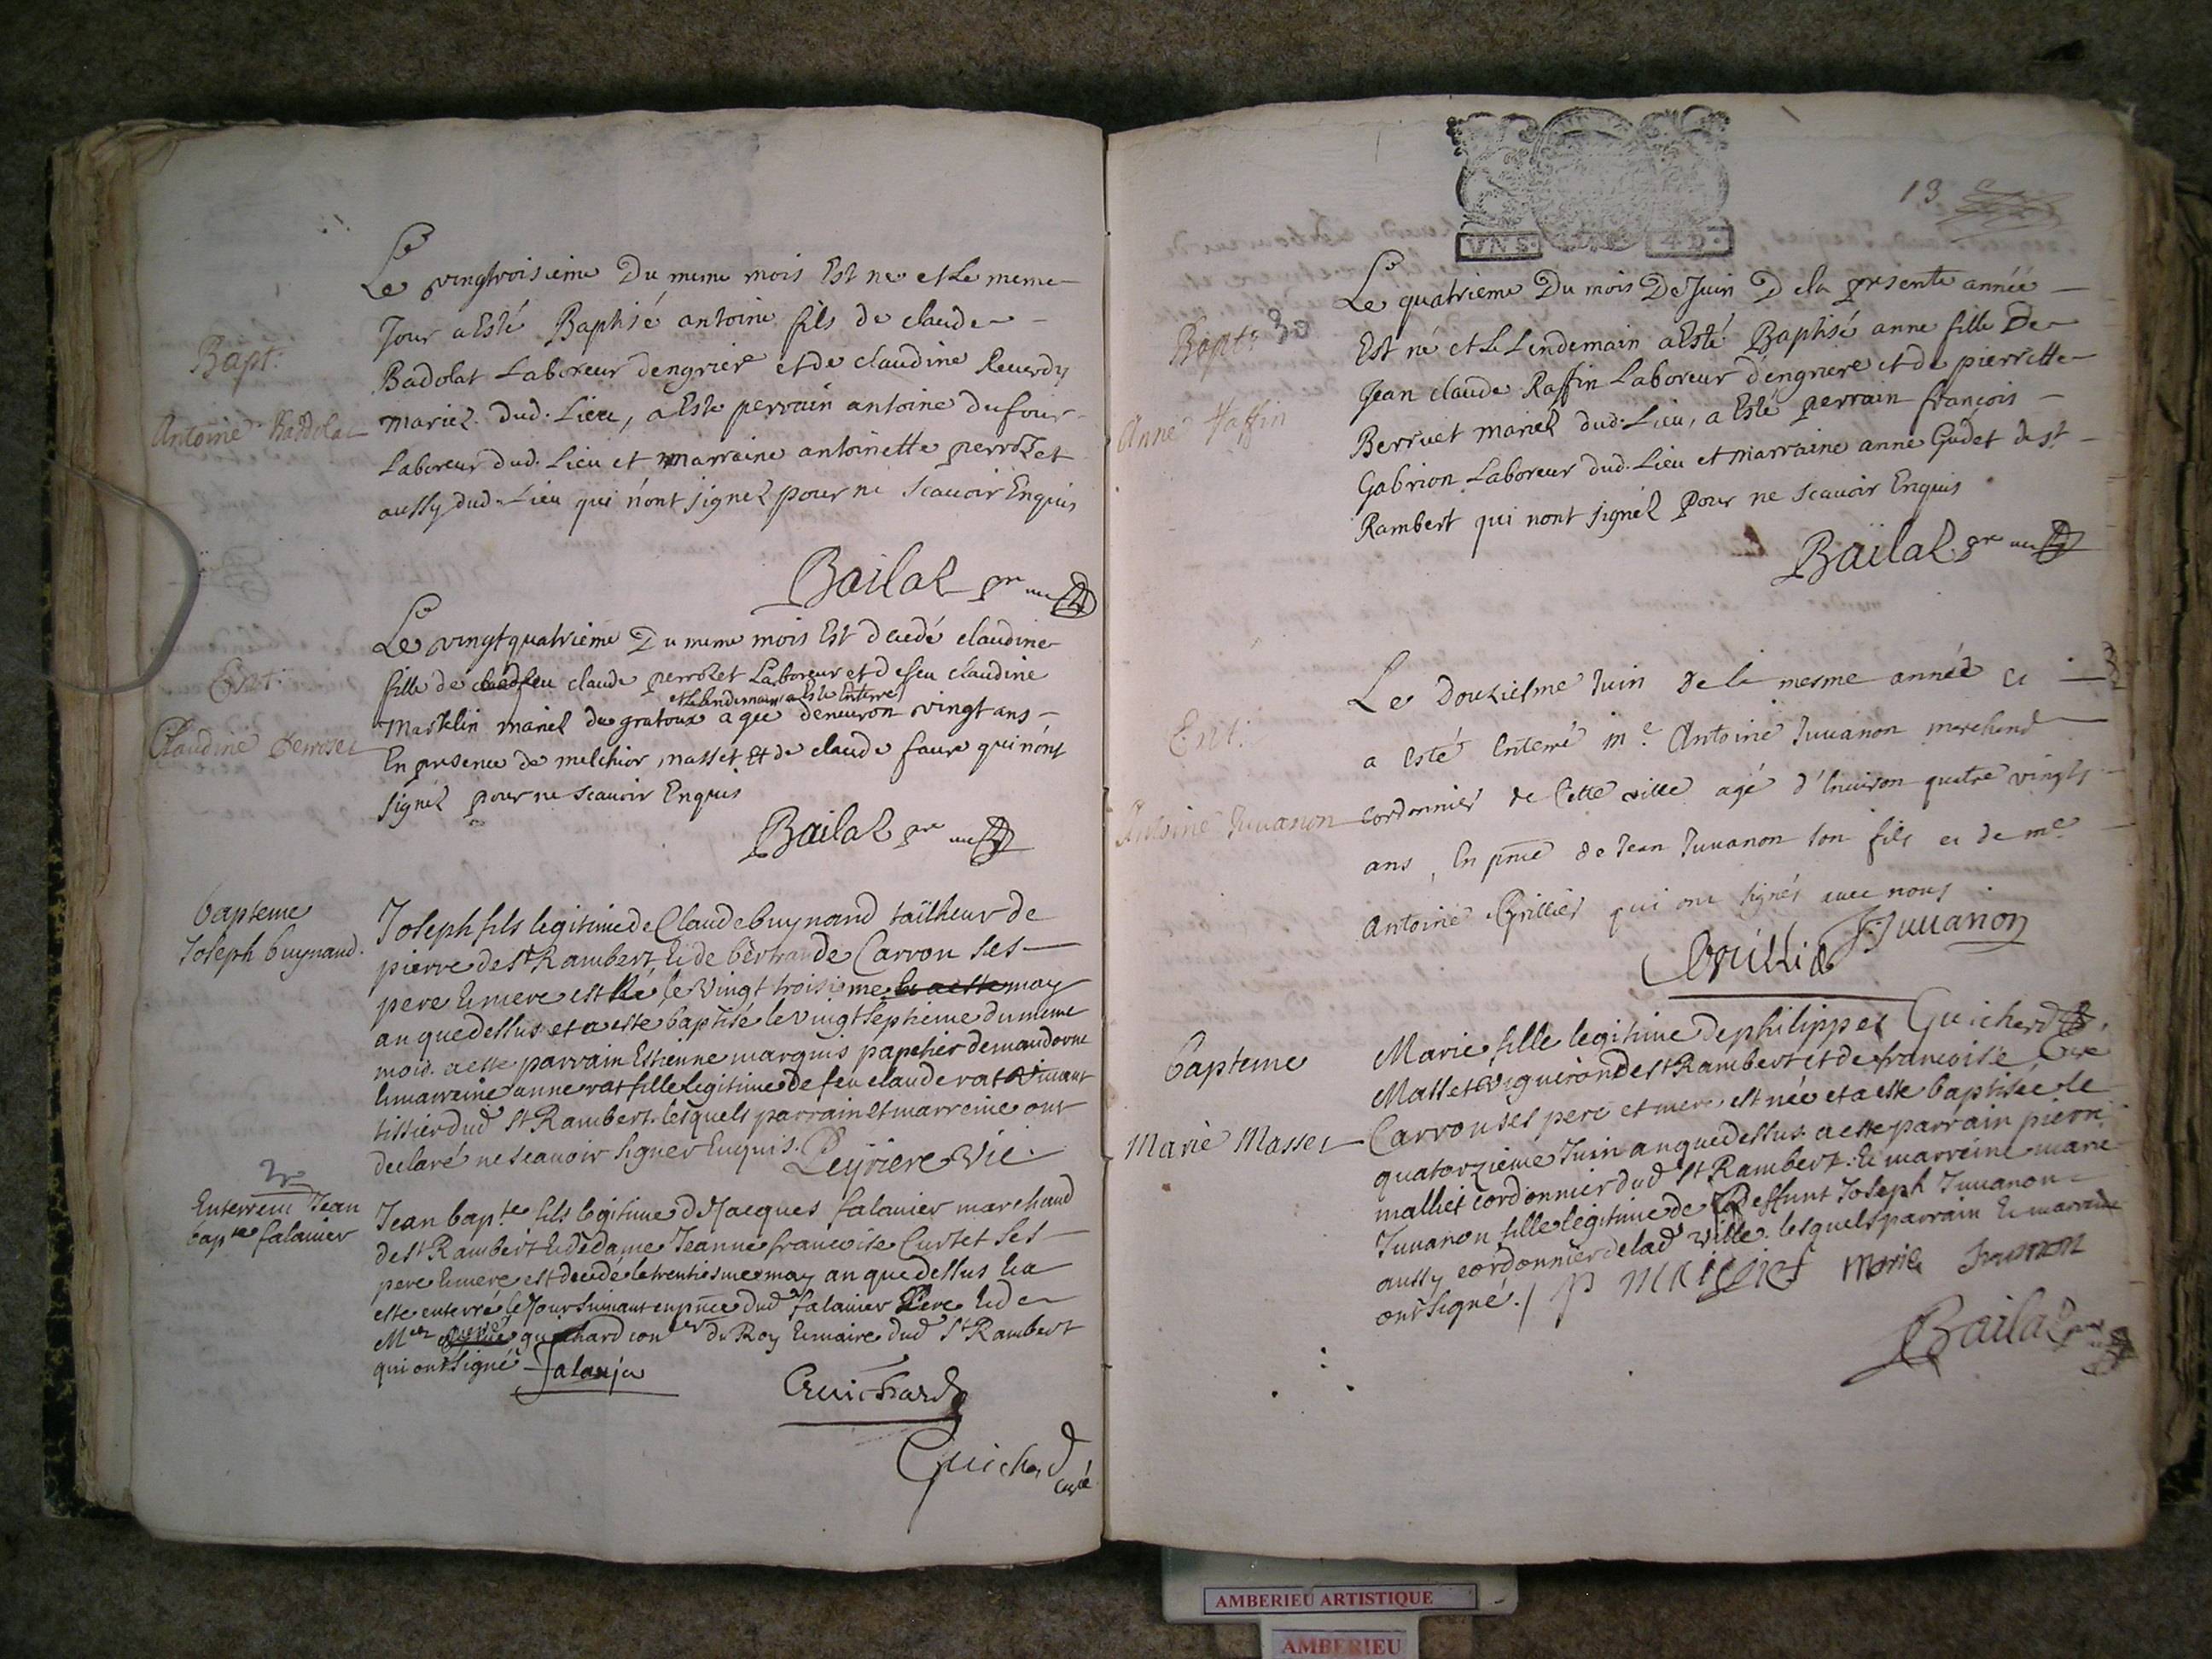 Le vingtroisieme Du meme mois Est né et Le meme
Jour a Esté Baptisé antoine fils de claude
Bapt:
Badolat Laboreur dengriere et de claudine Reuerdy
Antoine Badolat
mariez dud. Lieu, a Esté perrain antoine dufour
Laboreur dud. Lieu et marraine antoinette perrozet
aussy dud. Lieu qui n'ont signez pour ne scauoir Enquis
Bailaz pre
Le vingtquatrieme Du meme mois Est decedé claudine
fille de feu claude perrozet Laboreur et de feu claudine
Ent:
et Le lendemain a Esté Enterré
Masklin mariez du gratoux agee denuiron vingt ans
Claudine Perrozet
En presence de melchior masset Et de claude faure qui n'ont
signéz pour ne scauoir Enquis
Bailaz pre
bapteme
Joseph buynand.
Joseph fils legitime de Claude buynand tailheur de
pierre de St Rambert & de bertrande Carron ses
pere & mere est né, le vingt troisieme & a esté may
an que dessus et a esté baptisé le vingt septieme du meme
mois. a esté parrain Estienne marquis papetier demandorne
& marreine anne rat fille legitime de feu claude rat vivant
tissier dud St Rambert. lesquels parrain et marreine ont
declaré ne scauoir signer Enquis. Peyriere Vic:
Enterremt Jean
bapte falauier
Jean bapte fils legitime de Jacques falauier marchand
de St Rambert & de dame Jeanne francoise Curtet ses
pere & mere est decedé le trentiesme may an que dessus & a
esté enterré le Jour suiuant en pnce dud falauier Pere & de
Mre guichard coner du Roy & maire dud St Rambert
qui ont signé
falauja
Guichard
Guichard
curé
13
VN S. 4 D.
Le quatrieme Du mois De Juin De la presente année
Bapt:
Est né et Le Lendemain a Esté Baptisé anne fille De
Jean claude Raffin Laboreur dengriere et de pierrette
Anne Raffin
Berruet mariez dud. Lieu, a Esté perrain françois
Gabrion Laboreur dud. Lieu et marraine anne Gudet de st
Rambert qui nont signéz Pour ne scauoir Enquis
Bailaz pre
Le Douziesme Juin de la mesme année
Ent:
a Esté Enterré me Antoine Juuanon marchand
Antoine Juuanon
cordonnier de Cette ville agé d'Enuiron quatre vingts
ans, En pnce de Jean Juuanon son fils et de me
Antoine Grillier qui ont signés auec nous.
Grillier JJuuanon
Guichard
bapteme
Marie fille legitime de philippes
Masset vigneron de st Rambert et de francoise
Marie Masset
Carron ses pere et mere est née et a esté baptisée le
quatorzieme Juin an que dessus. a esté parrain pierre
malliet cordonnier dud St Rambert. & marreine marie
Juuanon fille legitime de deffunt Joseph Juuanon
aussy cordonnier de lad ville. lesquels parrain & marreine
ont signé. / P malliet marie Juuanon
Bailaz pre
AMBERIEU ARTISTIQUE
AMBERIEU